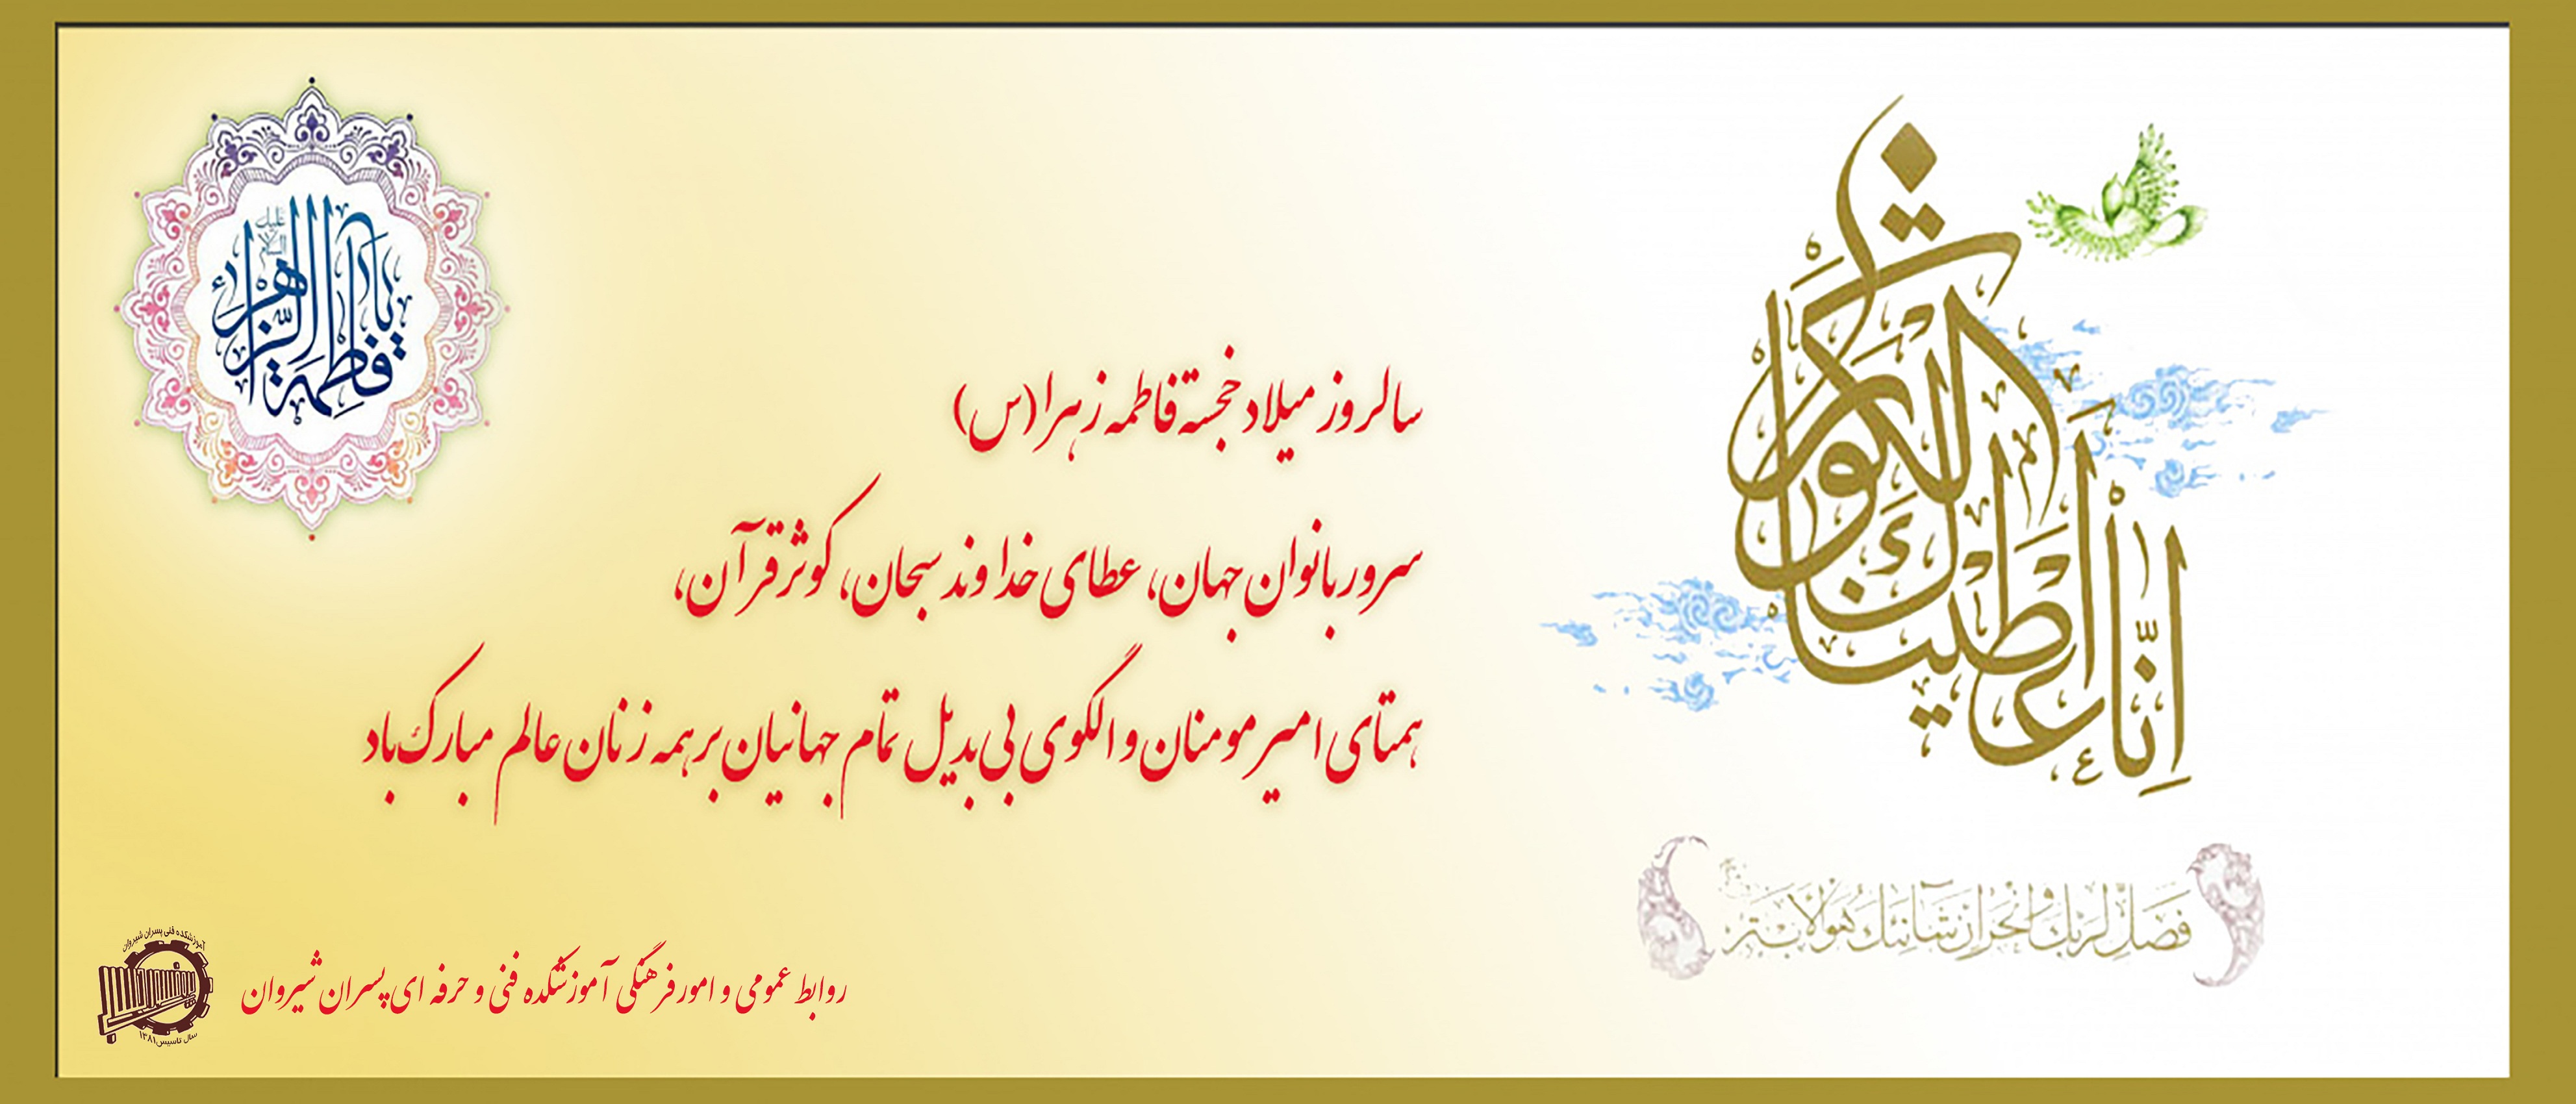 إِنَّا أَعْطَيْنَاكَ الْكَوْثَرَ
فَصَلِّ لِرَبِّكَ وَانْحَرْ إِنَّ شَانِئَكَ هُوَ الْأَبْتَرُ
یا فاطمة الزهراء
علیك السلام
سالروز میلاد خجسته فاطمه زهرا (س)
سرور بانوان جهان، عطای خداوند سبحان، کوثر قرآن،
همتای امیر مومنان و الگوی بی بدیل تمام جهانیان بر همه زنان عالم مبارک باد
روابط عمومی و امور فرهنگی آموزشکده فنی و حرفه ای پسران شیروان
آموزشکده فنی پسران شیروان
سال تاسیس ۱۳۸۱